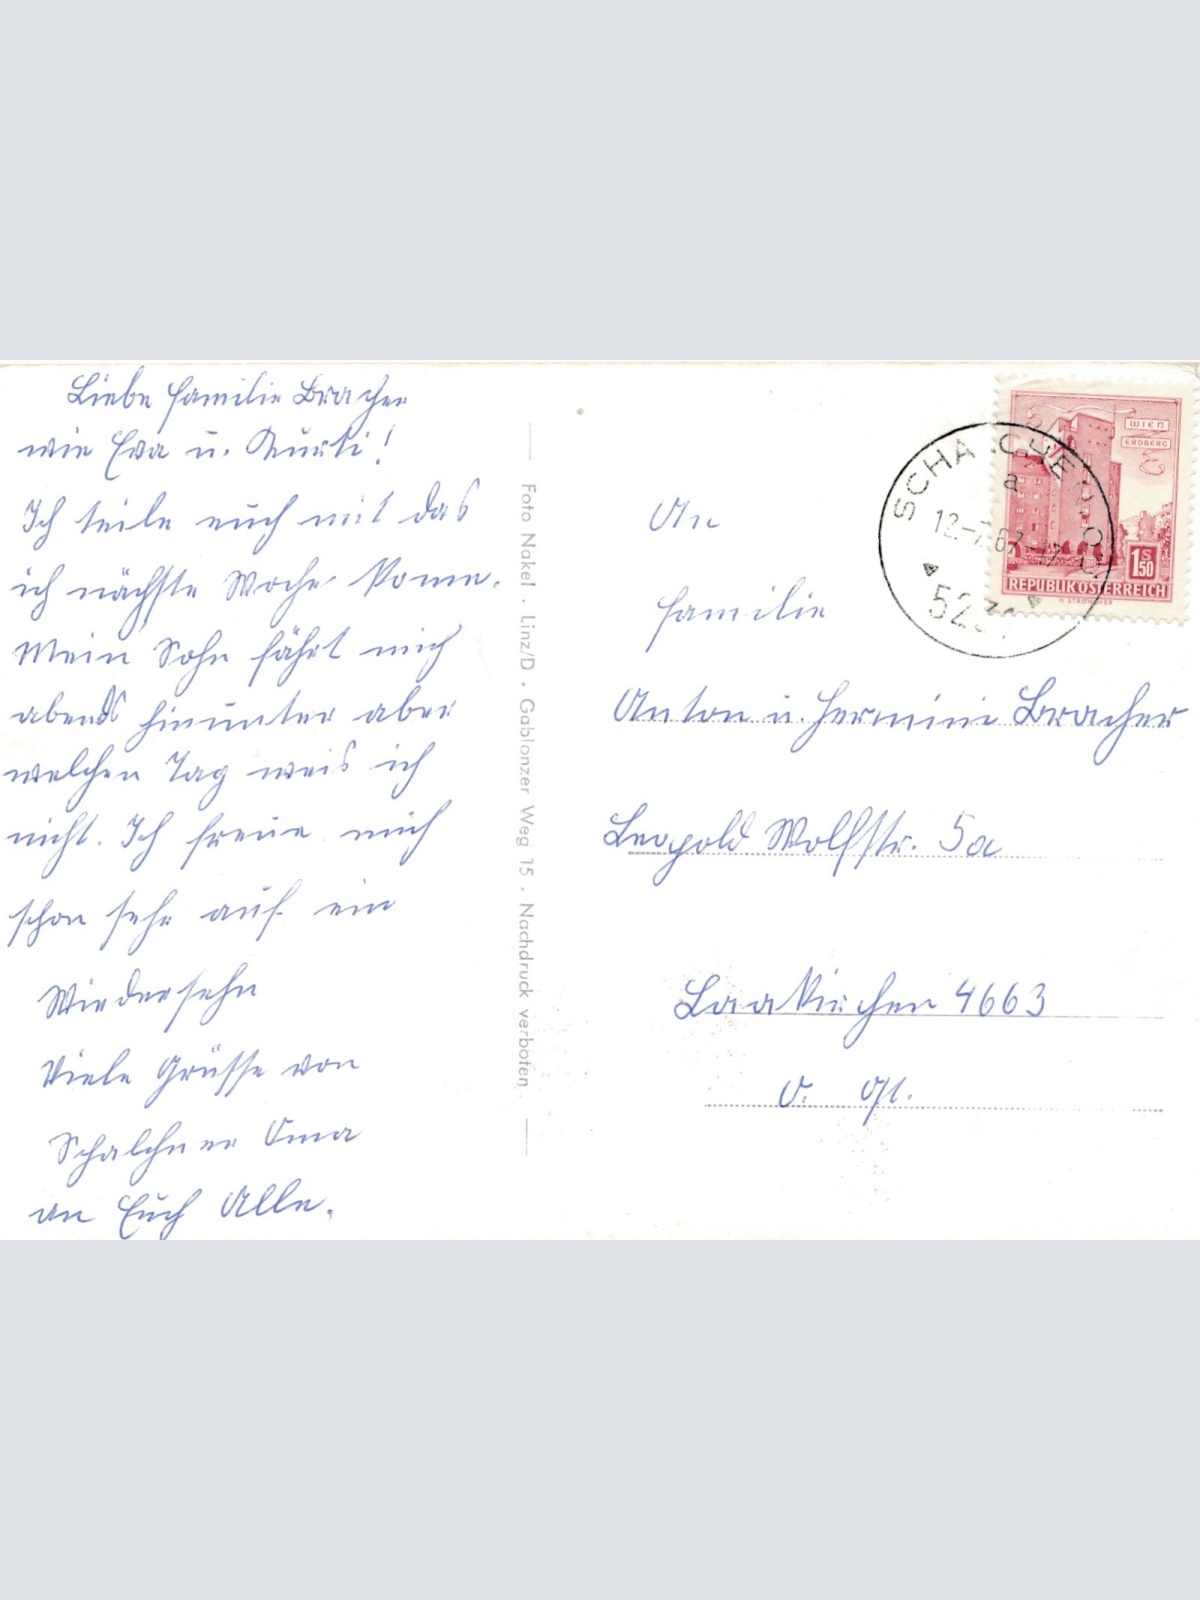 Liebe Familie Bracher
wie Eva u. Kurti!
Ich teile euch mit das
ich nächste Woche komme.
Mein Sohn fährt mich
abends hinunter aber
welchen Tag weis ich
nicht. Ich freue mich
schon sehr auf ein
Wiedersehn
Viele Grüsse von
Schalchner Oma
an Euch Alle.
Foto Nakel · Linz/D · Gablonzer Weg 15 · Nachdruck verboten
SCHA CHE
a
12-7.67-17
WIEN
ERDBERG
1 S 50
REPUBLIK ÖSTERREICH
An
Familie
Anton u. Hermine Bracher
Leopold Wolfstr. 5a
Laakirchen 4663
O. Öst.